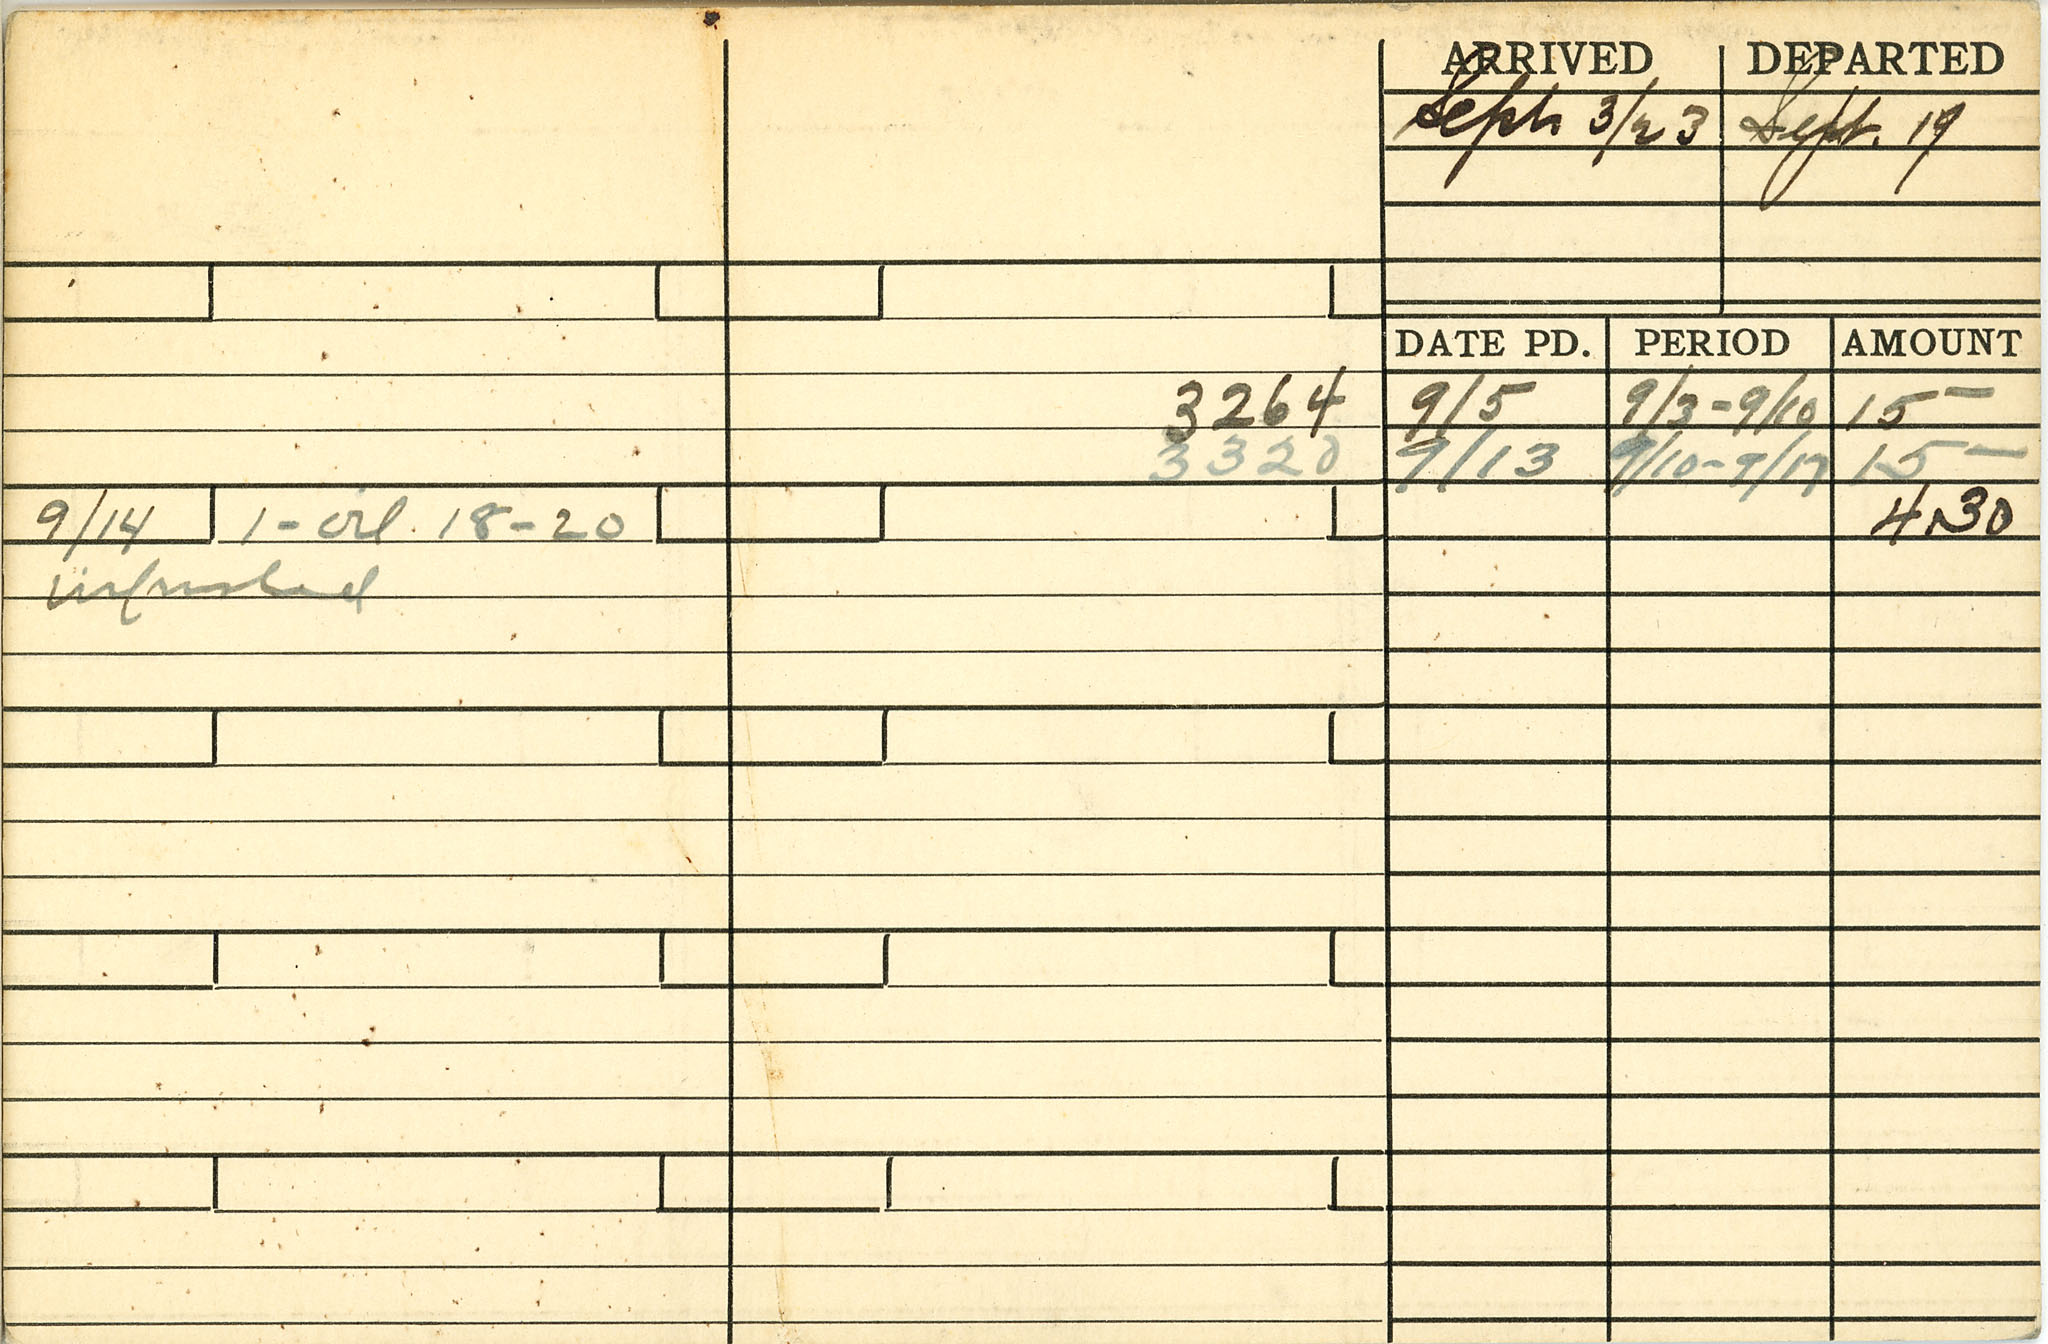 ARRIVED DEPARTED
Sept. 3/23 Sept. 19
DATE PD. PERIOD AMOUNT
3264 9/5 9/3-9/10 15-
3320 9/13 9/10-9/17 15-
9/14 1-oil 18-20 4.30
unfinished